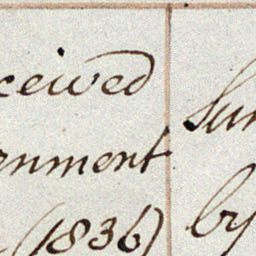 ceived
ernment
(1836)
Sur
by